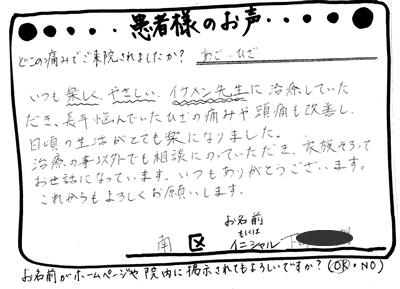 患者様のお声
どこの痛みでご来院されましたか？ あご・ひざ
いつも楽しく、やさしい、イケメン先生に治療していた
だき、長年悩んでいたひざの痛みや頭痛も改善し、
日頃の生活がとても楽になりました。
治療の事以外でも相談にのっていただき、家族そろって
お世話になっています。いつもありがとうございます。
これからもよろしくお願いします。
南 区 お名前
もしくは
イニシャル
お名前がホームページや院内に掲示されてもよろしいですか？(OK・NO)